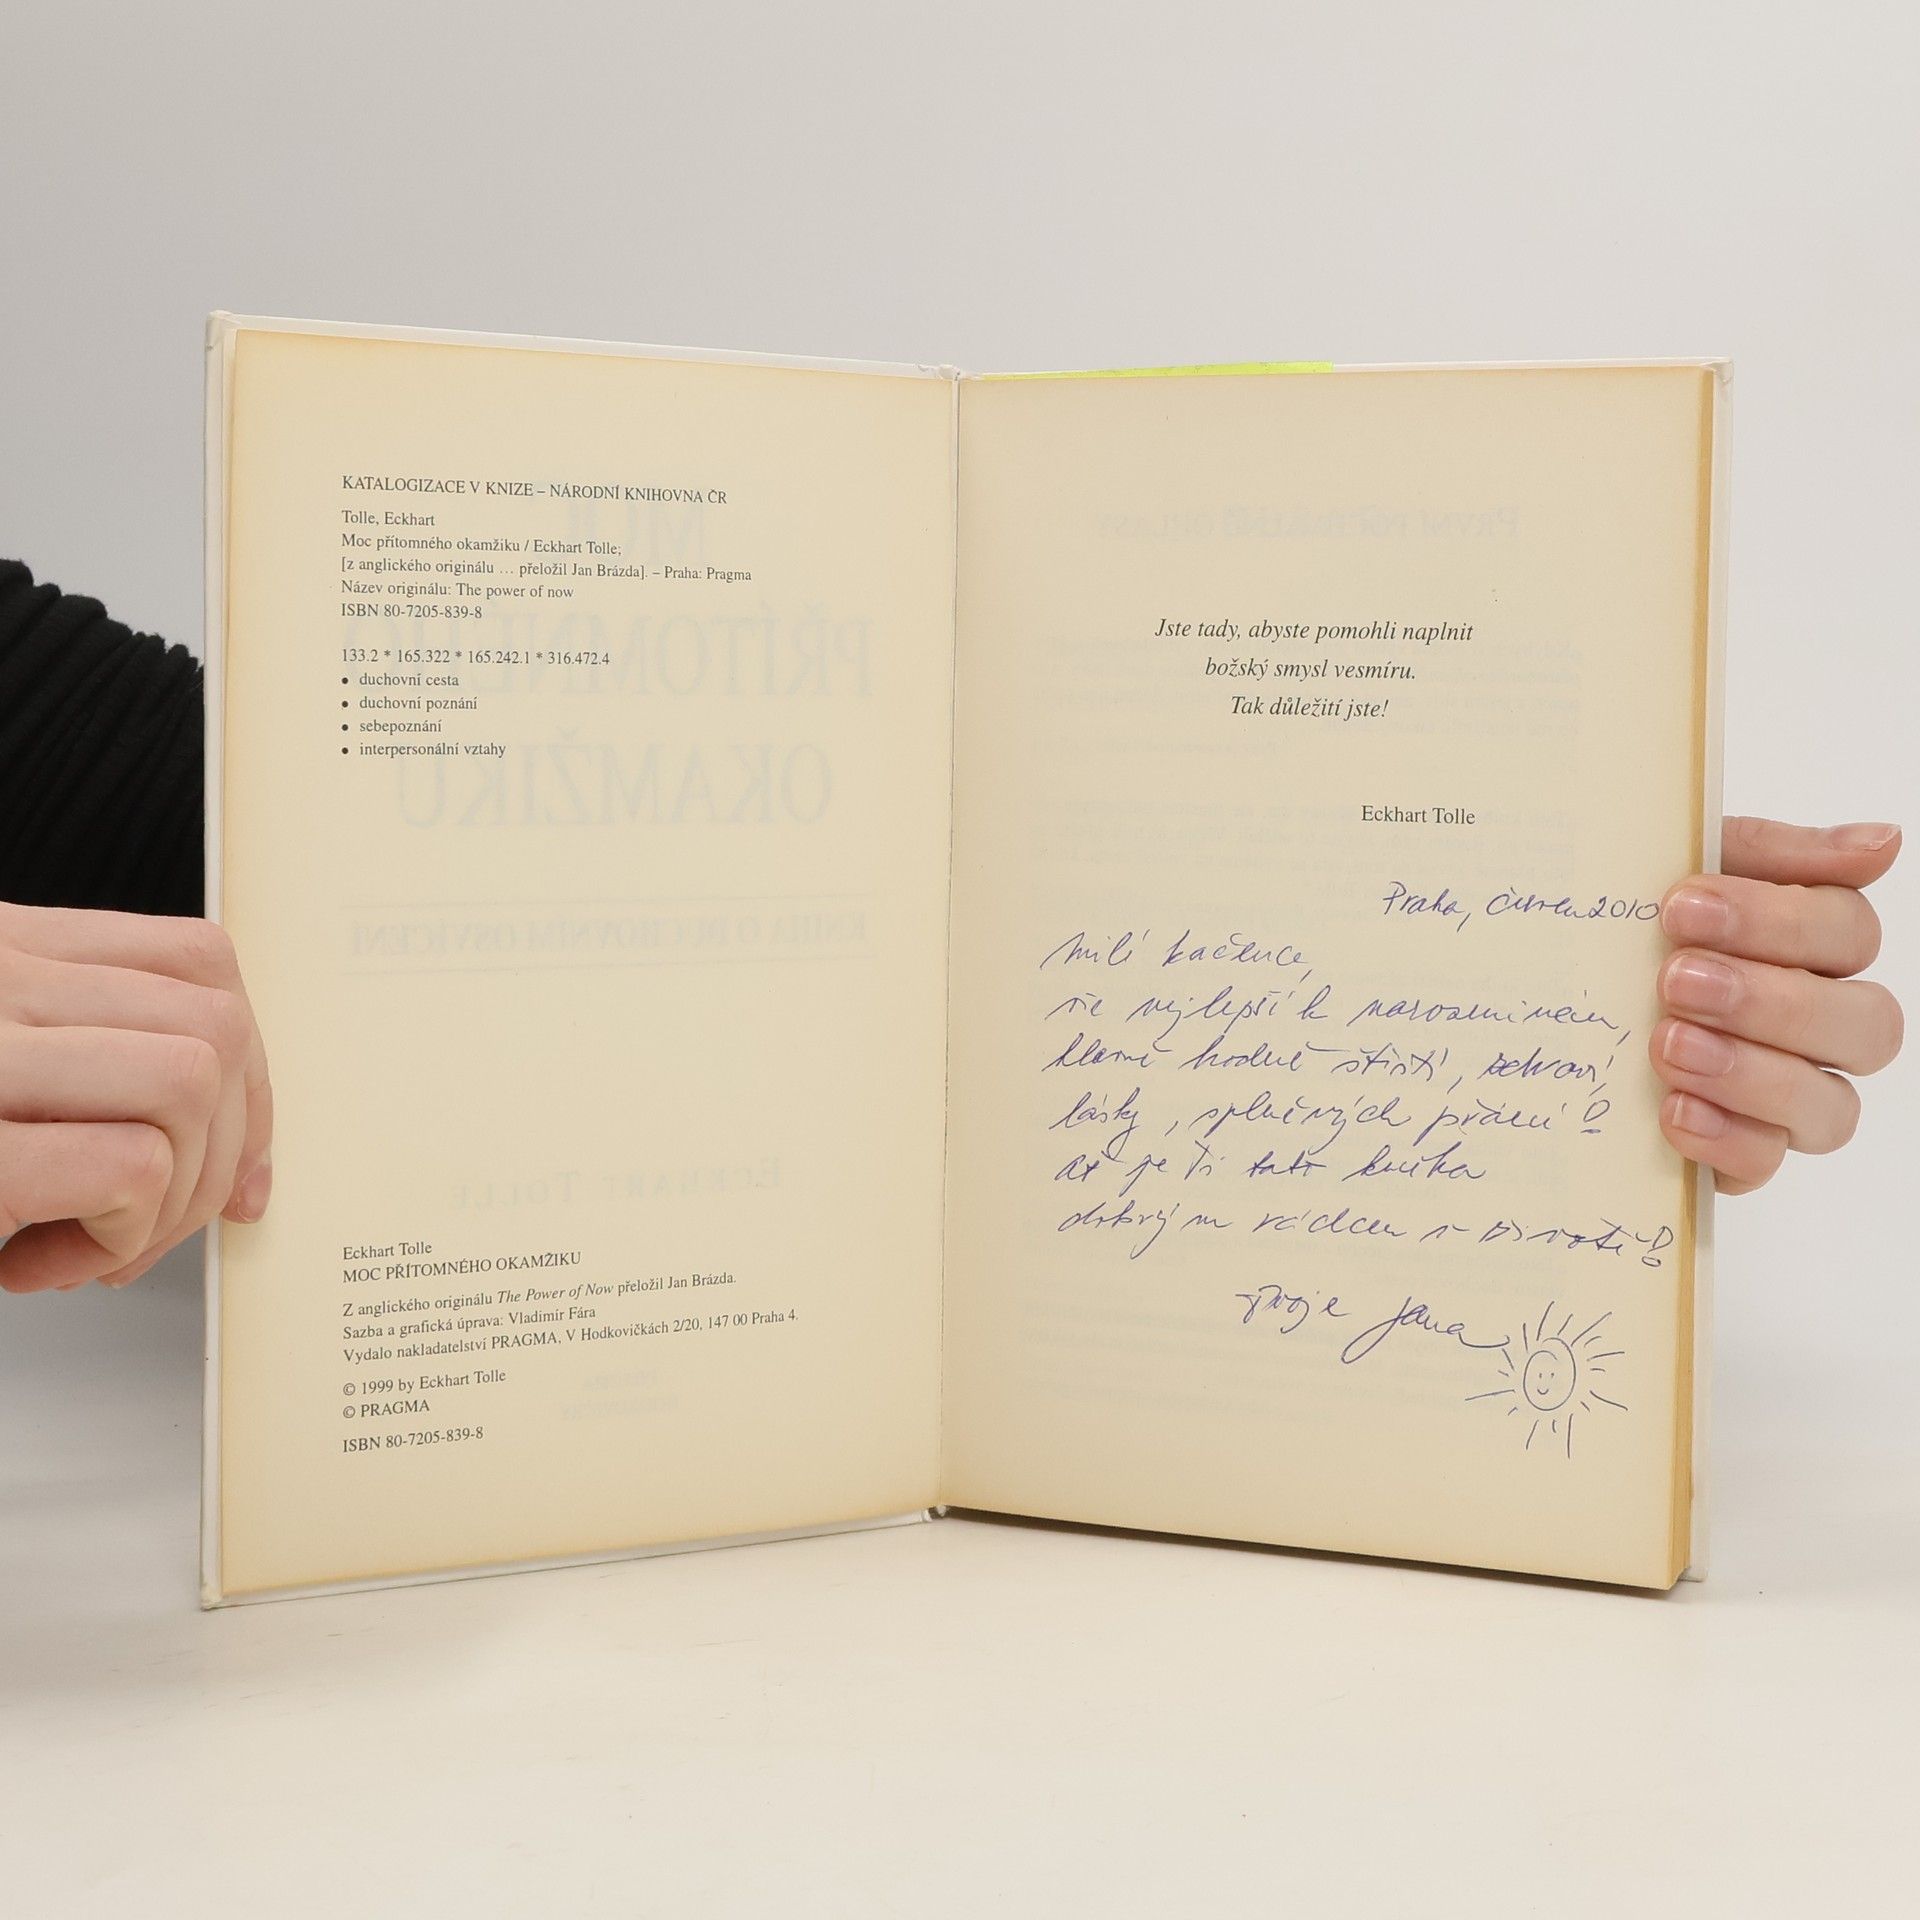 KATALOGIZACE V KNIZE – NÁRODNÍ KNIHOVNA ČR
Tolle, Eckhart
Moc přítomného okamžiku / Eckhart Tolle;
[z anglického originálu … přeložil Jan Brázda]. – Praha: Pragma
Název originálu: The power of now
ISBN 80-7205-839-8
133.2 * 165.322 * 165.242.1 * 316.472.4
• duchovní cesta
• duchovní poznání
• sebepoznání
• interpersonální vztahy
Eckhart Tolle
MOC PŘÍTOMNÉHO OKAMŽIKU
Z anglického originálu The Power of Now přeložil Jan Brázda.
Sazba a grafická úprava: Vladimír Fára
Vydalo nakladatelství PRAGMA, V Hodkovičkách 2/20, 147 00 Praha 4.
© 1999 by Eckhart Tolle
© PRAGMA
ISBN 80-7205-839-8
Jste tady, abyste pomohli naplnit
božský smysl vesmíru.
Tak důležití jste!
Eckhart Tolle
Praha, červen 2010
Milí kačence,
vše nejlepší k narozeninám,
hlavně hodně štěstí, zdraví,
lásky, splněných přání!
Ať je Ti tato kniha
dobrým rádcem v životě!
Tvoje Jana